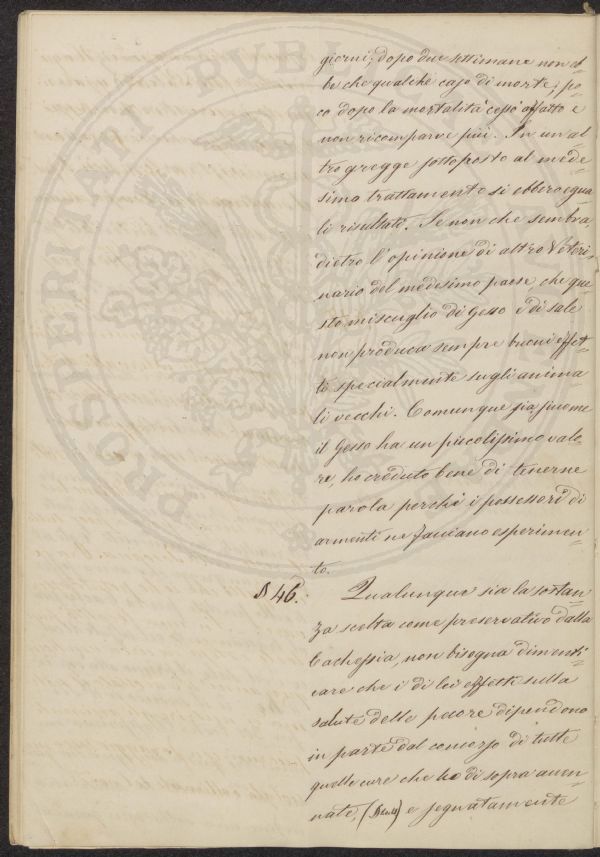 giorni; dopo due settimane non eb=
be che qualche caso di morte; po=
co dopo la mortalità cessò affatto e
non ricomparve più. In un al=
tro gregge sottoposto al mede=
simo trattamento si ebbero egua=
li risultati. Se non che sembra,
dietro l'opinione di altro Veteri=
nario del medesimo paese che que=
sto miscuglio di Gesso e di sale
non produca sempre buoni effet=
ti specialmente sugli anima=
li vecchi. Comunque sia siccome
il Gesso ha un piccolissimo valo=
re, ho creduto bene di tenerne
parola perché i possessori di
armenti ne facciano esperimen=
to.
§ 46. Qualunque sia la sostan=
za scelta come preservativo dalla
Cachessia, non bisogna dimenti=
care che i di lei effetti sulla
salute delle pecore dipendono
in parte dal concorso di tutte
quelle cure che ho di sopra accen=
nate, e segnatamente
PROSPERI MAR PVBL